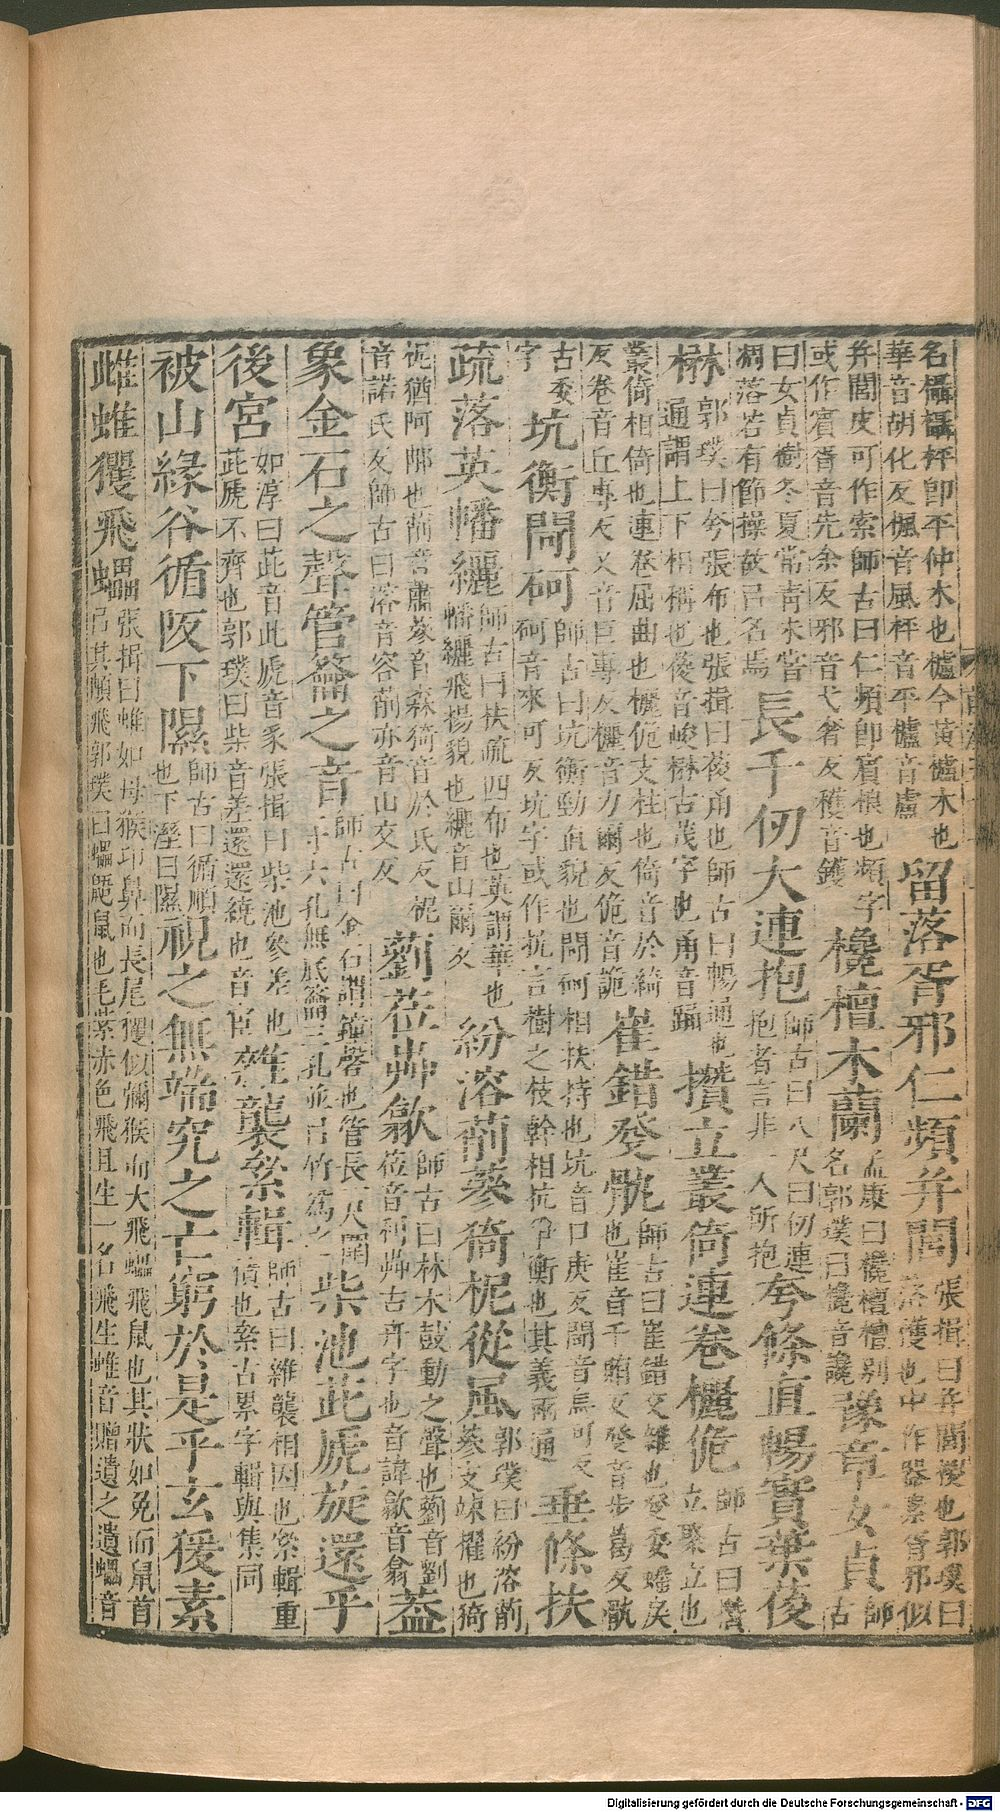 名櫹欇枰即平仲木也櫨今黃櫨木也
華音胡化反楓音風枰音平櫨音盧
留落胥邪仁頻并閭
張揖曰并閭椶也郭璞曰
落檴也中作器素胥邪似
并閭皮可作索師古曰仁頻即賓桹也頻字
或作賓胥音先余反邪音弋奢反檴音鑊
欃檀木蘭
孟康曰欃檀檀別
名郭璞曰欃音讒
豫章女貞
師
古
曰女貞樹冬夏常青未嘗
凋落若有節操故㠯名焉
長千仞大連抱
師古曰八尺曰仞連
抱者言非一人所抱
夸條直暢實葉葰
楙
郭璞曰夸張布也張揖曰葰甬也師古曰暢通也
通謂上下相稱也葰音峻楙古茂字也甬音踊
攢立叢倚連卷欐佹
師古曰攢
立聚立也
叢倚相倚也連卷屈曲也欐佹支柱也倚音於綺
反卷音丘專反又音巨專反欐音力爾反佹音詭
崔錯癹骫
師古曰崔錯交雜也癹委蟠戾
也崔音千賄反癹音步葛反骫
古委
字
坑衡閜砢
師古曰坑衡勁直貌也閜砢相扶持也坑音口庚反閜音烏可反
砢音來可反坑字或作抗言樹之枝幹相抗爭衡也其義兩通
垂條扶
疏落英幡纚
師古曰扶疏四布也英謂華也
幡纚飛揚貌也纚音山爾反
紛溶萷蔘猗柅從風
郭璞曰紛溶萷
蔘支竦擢也猗
柅猶阿那也萷音蕭蔘音森猗音於氏反柅
音諾氏反師古曰溶音容萷亦音山交反
藰莅芔歙
師古曰林木鼓動之聲也藰音劉
莅音利芔古卉字也音諱歙音翕
蓋
象金石之聲管籥之音
師古曰金石謂鐘磬也管長一尺圍
一寸六孔無底籥三孔並㠯竹爲之
柴池茈虒旋還乎
後宮
如淳曰茈音此虒音豸張揖曰柴池參差也
茈虒不齊也郭璞曰柴音差還還繞也音宦
雜襲絫輯
師古曰雜襲相因也絫輯重
積也絫古累字輯與集同
被山緣谷循阪下隰
師古曰循順
也下溼曰隰
視之無端究之亡窮於是乎玄猨素
雌蜼玃飛蠝
張揖曰蜼如母猴卬鼻而長尾玃似獼猴而大飛蠝飛鼠也其狀如兔而鼠首
㠯其飛郭璞曰蠝鼯鼠也毛紫赤色飛且生一名飛生蜼音贈遺之遺蠝音
Digitalisierung gefördert durch die Deutsche Forschungsgemeinschaft - DFG